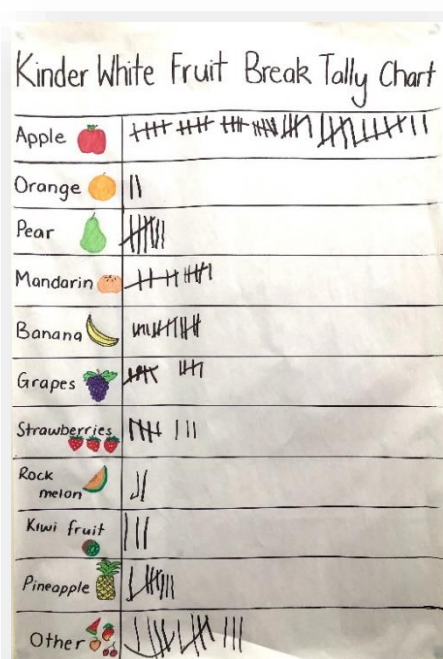 Kinder White Fruit Break Tally Chart
Apple
Orange
Pear
Mandarin
Banana
Grapes
Strawberries
Rock
melon
Kiwi fruit
Pineapple
Other